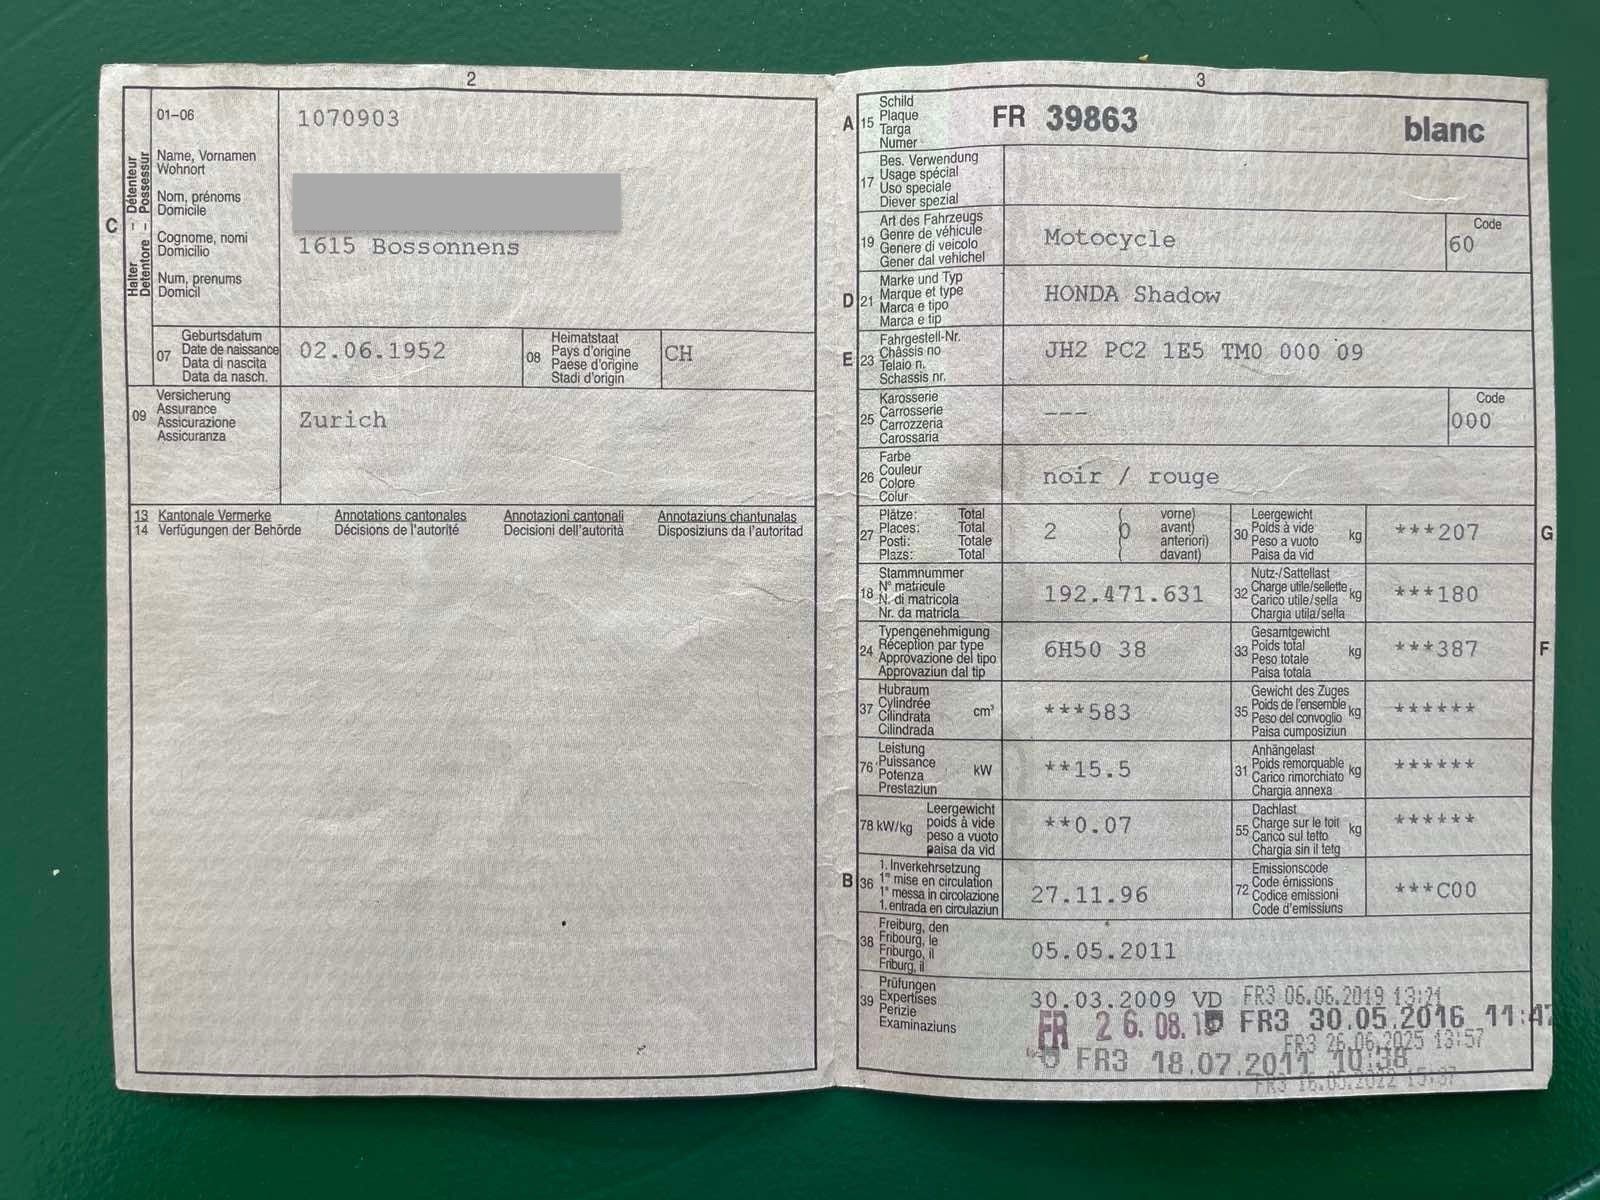 2
01–06
1070903
Name, Vornamen
Wohnort
Nom, prénoms
Domicile
Cognome, nomi
Domicilio
Num, prenums
Domicil
C
Halter – Détenteur
Detentore – Possessur
1615 Bossonnens
07
Geburtsdatum
Date de naissance
Data di nascita
Data da nasch.
02.06.1952
08
Heimatstaat
Pays d'origine
Paese d'origine
Stadi d'origin
CH
09
Versicherung
Assurance
Assicurazione
Assicuranza
Zurich
13 Kantonale Vermerke Annotations cantonales Annotazioni cantonali Annotaziuns chantunalas
14 Verfügungen der Behörde Décisions de l'autorité Decisioni dell'autorità Disposiziuns da l'autoritad
3
A 15
Schild
Plaque
Targa
Numer
FR 39863 blanc
17
Bes. Verwendung
Usage spécial
Uso speciale
Diever spezial
19
Art des Fahrzeugs
Genre de véhicule
Genere di veicolo
Gener dal vehichel
Motocycle
Code
60
D 21
Marke und Typ
Marque et type
Marca e tipo
Marca e tip
HONDA Shadow
E 23
Fahrgestell-Nr.
Châssis no
Telaio n.
Schassis nr.
JH2 PC2 1E5 TM0 000 09
25
Karosserie
Carrosserie
Carrozzeria
Carossaria
---
Code
000
26
Farbe
Couleur
Colore
Colur
noir / rouge
27
Plätze: Total
Places: Total
Posti: Totale
Plazs: Total
2
( vorne)
( avant)
( anteriori)
( davant)
0
30
Leergewicht
Poids à vide
Peso a vuoto
Paisa da vid
kg
***207
G
18
Stammnummer
N° matricule
N. di matricola
Nr. da matricla
192.471.631
32
Nutz-/Sattellast
Charge utile/sellette
Carico utile/sella
Chargia utila/sella
kg
***180
24
Typengenehmigung
Réception par type
Approvazione del tipo
Approvaziun dal tip
6H50 38
33
Gesamtgewicht
Poids total
Peso totale
Paisa totala
kg
***387
F
37
Hubraum
Cylindrée
Cilindrata
Cilindrada
cm³
***583
35
Gewicht des Zuges
Poids de l'ensemble
Peso del convoglio
Paisa cumposiziun
kg
******
76
Leistung
Puissance
Potenza
Prestaziun
kW
**15.5
31
Anhängelast
Poids remorquable
Carico rimorchiato
Chargia annexa
kg
******
78 kW/kg
Leergewicht
poids à vide
peso a vuoto
paisa da vid
**0.07
55
Dachlast
Charge sur le toit
Carico sul tetto
Chargia sin il tetg
kg
******
B 36
1. Inverkehrsetzung
1re mise en circulation
1a messa in circolazione
1. entrada en circulaziun
27.11.96
72
Emissionscode
Code émissions
Codice emissioni
Code d'emissiuns
***C00
38
Freiburg, den
Fribourg, le
Friburgo, il
Friburg, il
05.05.2011
39
Prüfungen
Expertises
Perizie
Examinaziuns
30.03.2009 VD FR3 06.06.2019 13:21
FR 26.08.1 FR3 30.05.2016 11:47
FR3 26.06.2025 13:57
FR3 18.07.2011 10:38